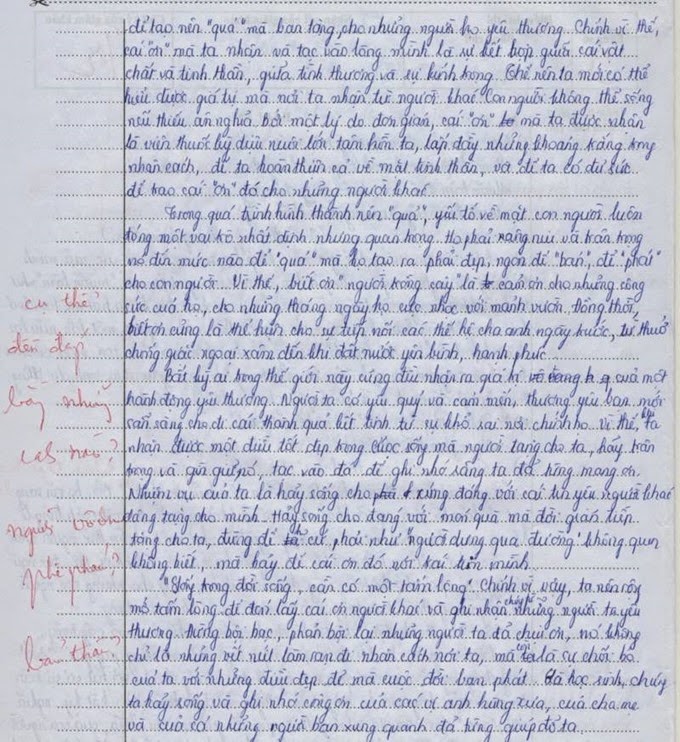 để tạo nên "quả" mà ban tặng cho những người họ yêu thương. Chính vì thế,
cái "ơn" mà ta nhận và tạc vào lòng mình là sự kết hợp giữa cái vật
chất và tinh thần, giữa tình thương và sự kính trọng. Thế nên ta mới có thể
hiểu được giá trị mà nơi ta nhận từ người khác. Con người không thể sống
nếu thiếu ân nghĩa. Bởi một lý do đơn giản, cái "ơn" mà ta được nhận
là viên thuốc kỳ diệu nuôi lớn tâm hồn ta, lấp đầy những khoảng trống trong
nhân cách, để ta hoàn thiện cả về mặt tinh thần, và để ta có đủ sức
để trao cái "ơn" đó cho những người khác.
Trong quá trình hình thành nên "quả", yếu tố về mặt con người luôn
đóng một vai trò nhất định nhưng quan trọng. Họ phải nâng niu và trân trọng
nó đến mức nào để "quả" mà họ tạo ra phải đẹp, ngon để "ban", để "phát"
cho con người. Vì thế, biết ơn "người trồng cây" là cảm ơn cho những công
sức của họ, cho những tháng ngày họ cực nhọc với mảnh vườn. Đồng thời,
biết ơn cũng là thể hiện cho sự tiếp nối các thế hệ cha anh ngày trước, từ thuở
chống giặc ngoại xâm đến khi đất nước yên bình, hạnh phúc.
Bất kỳ ai trong thế giới này cũng đều nhận ra giá trị của một
hành động yêu thương. Người ta có yêu quý và cảm mến, thương yêu bạn mới
sẵn sàng cho đi cái thành quả kết tinh từ sự khổ sai nơi chính họ. Vì thế, khi ta
nhận được một điều tốt đẹp trong cuộc sống mà người tặng cho ta, hãy trân
trọng và gìn giữ nó, tạc vào đá để ghi nhớ rằng ta đã từng mang ơn.
Nhiệm vụ của ta là hãy sống cho xứng đáng với cái tin yêu người khác
dâng tặng cho mình. Hãy sống cho đáng với món quà mà đời gián tiếp
tặng cho ta, đừng để cư phải như "người dưng qua đường" không quen
không biết, mà hãy để ơn đó nơi trái tim mình.
"Sống trong đời sống, cần có một tấm lòng". Chính vì vậy, ta nên rộng
mở tấm lòng để đón lấy cái ơn người khác và ghi nhận những người ta yêu
thương. Đừng bội bạc, phản bội lại những người ta đã chịu ơn, nó không
chỉ là những vết nứt làm rạn đi nhân cách nơi ta, mà là sự chối bỏ
của ta với những điều đẹp đẽ mà cuộc đời ban phát. Là học sinh, chúng
ta hãy sống và ghi nhớ công ơn của các vị anh hùng xưa, của cha mẹ
và của cả những người bạn xung quanh đã từng giúp đỡ ta.
cụ thể
đền đáp
bằng những
cách nào?
người vô ơn
phê phán?
bản thân?